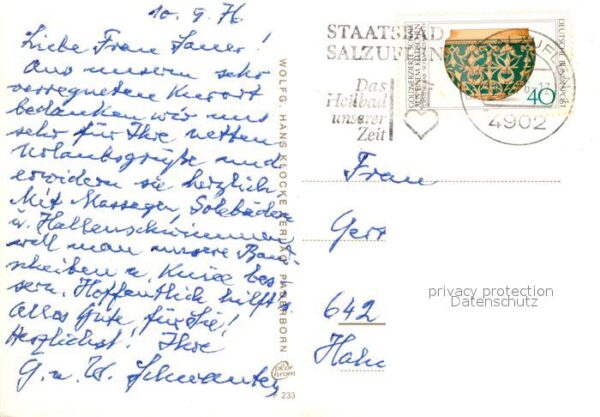 10.9.76
Liebe Frau Sauer!
Aus unserem sehr
verregneten Kurort
bedanken wir uns
sehr für Ihre netten
Urlaubsgrüße und
erwidern sie herzlich.
Mit Massagen, Solebädern
u. Hallenschwimmen
will man unsere Band-
scheiben u. Knie bes-
sern. Hoffentlich hilft's
Alles Gute für Sie!
Herzlichst! Ihre
G. u. W.
WOLFG. HANS KLOCKE VERLAG PADERBORN
color
chrom
233
STAATSBAD
SALZUFLEN
Das
Heilbad
unserer
Zeit
4902
DEUTSCHE BUNDESPOST
40
Frau
Gerr
642
Hahn
privacy protection
Datenschutz